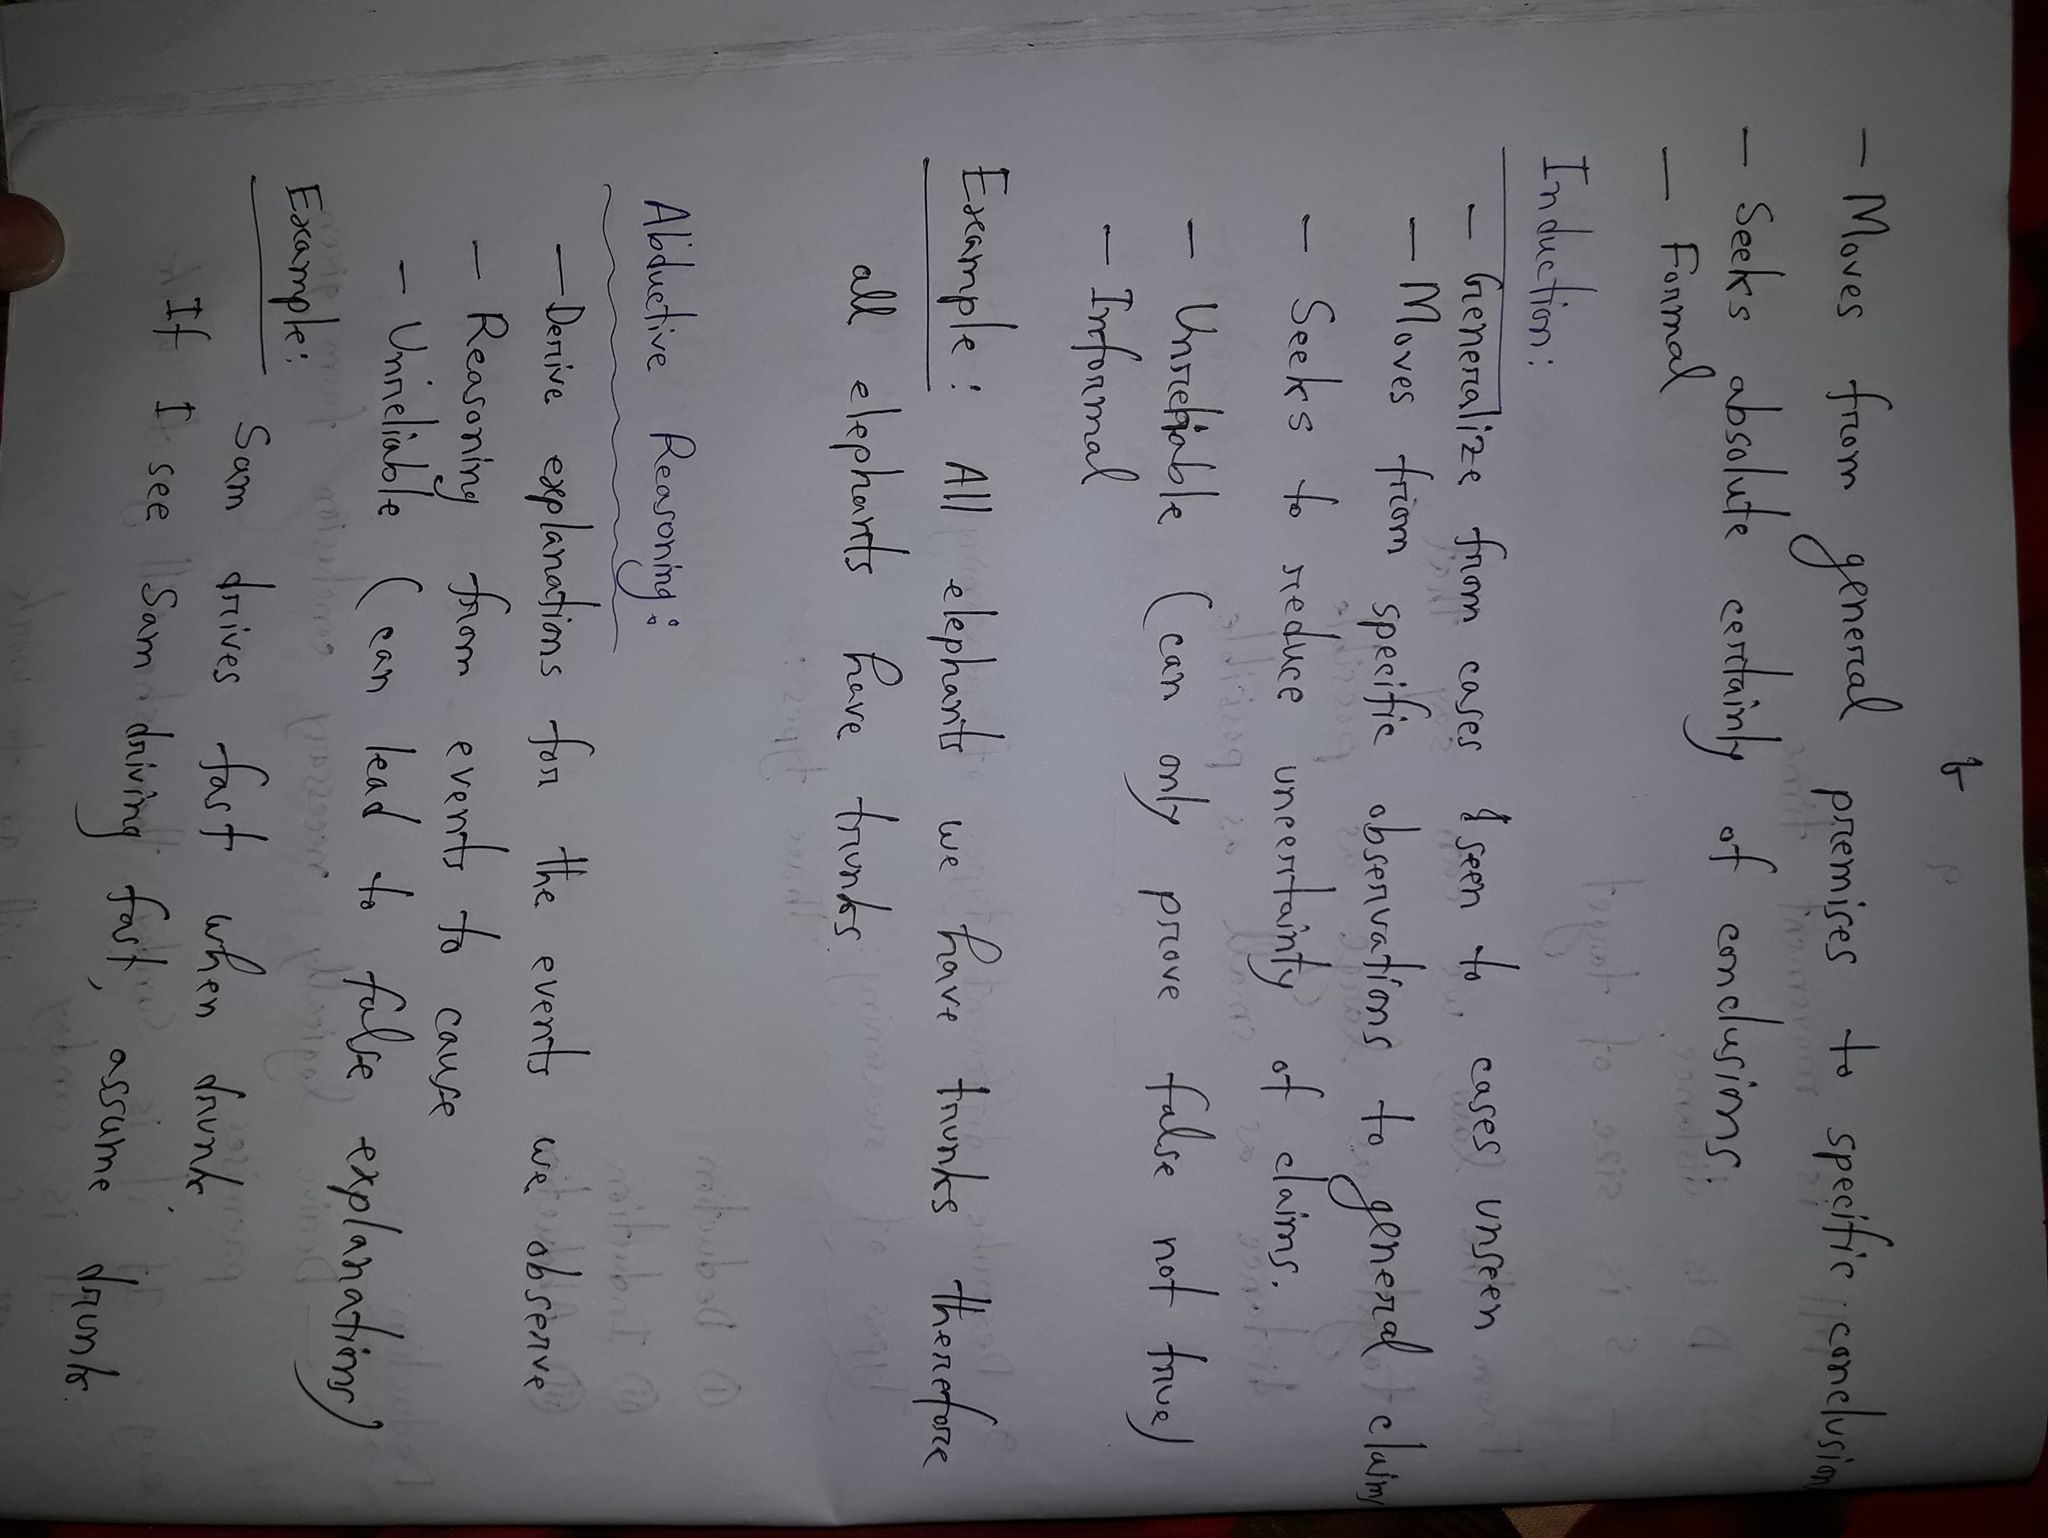 - Moves from general premises to specific conclusion
- Seeks absolute certainly of conclusions.
- Formal
Induction:
- Generalize from cases seen to cases unseen
- Moves from specific observations to general claims
- Seeks to reduce uncertainty of claims.
- Unreliable (can only prove false not true)
- Informal
Example: All elephants we have trunks therefore
all elephants have trunks.
Abductive Reasoning:
- Derive explanations for the events we observe
- Reasoning from events to cause
- Unreliable (can lead to false explanations)
Example:
Sam drives fast when drunk.
If I see Sam driving fast, assume drunk.